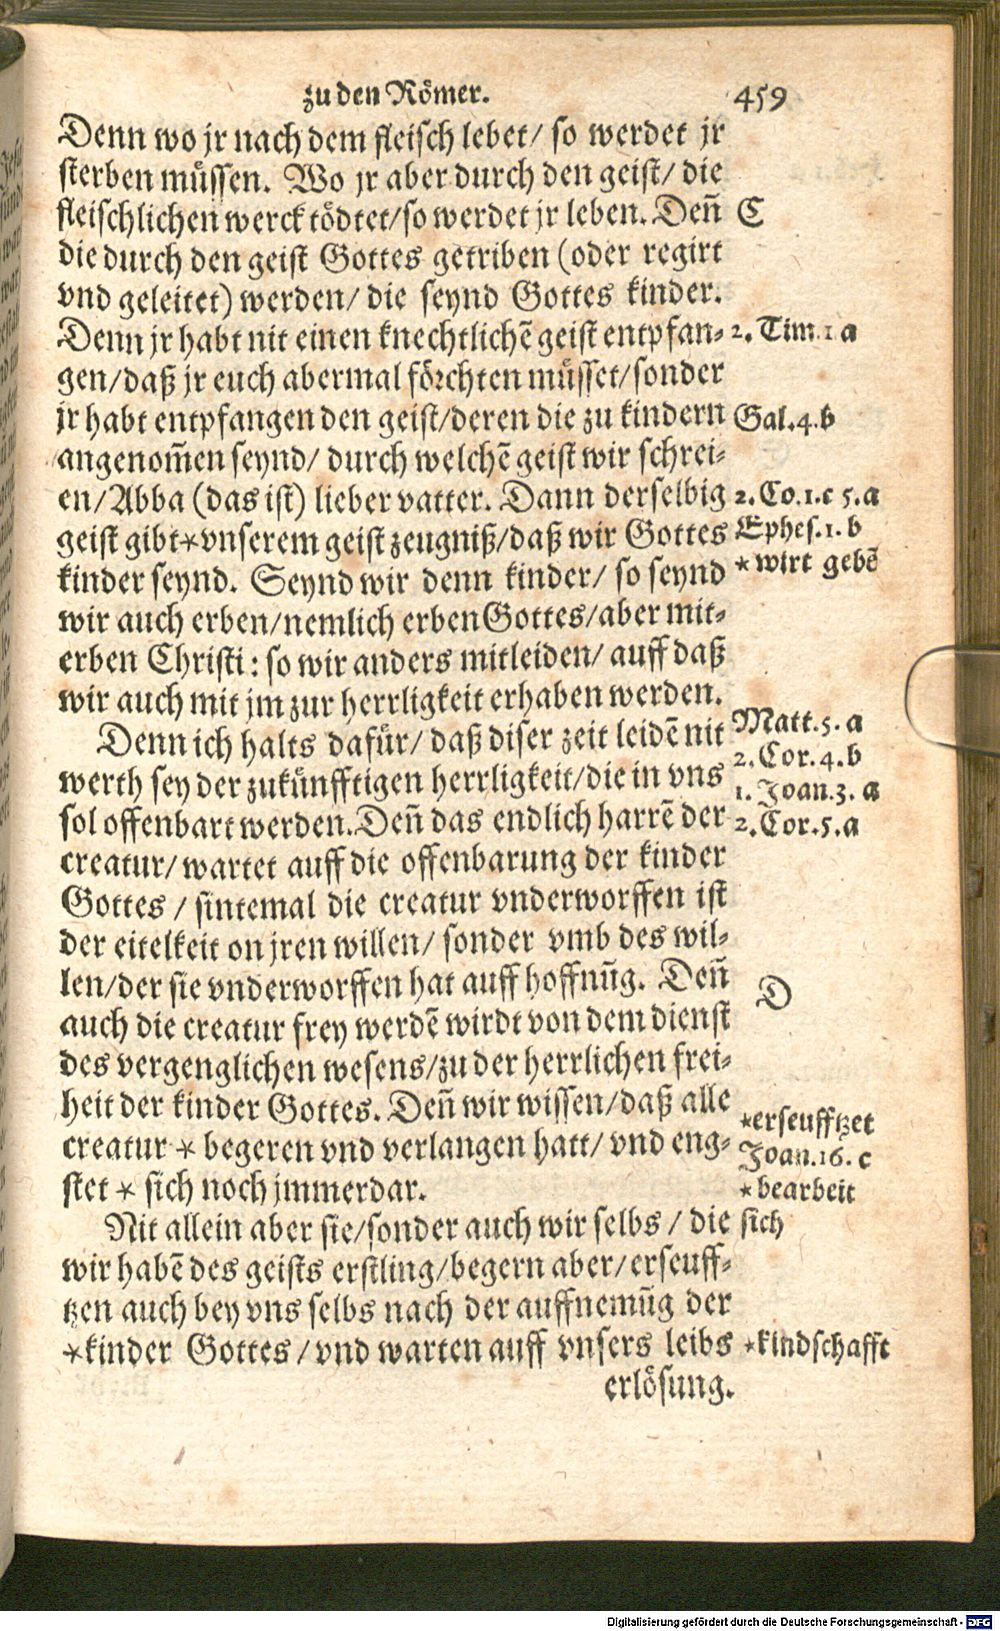 zu den Römer. 459
Denn wo jr nach dem fleisch lebet/ so werdet jr
sterben müssen. Wo jr aber durch den geist/ die
fleischlichen werck tödtet/so werdet jr leben. Deñ C
die durch den geist Gottes getriben (oder regirt
vnd geleitet) werden/ die seynd Gottes kinder.
Denn jr habt nit einen knechtlichẽ geist entpfan- 2. Tim. 1 a
gen/daß jr euch abermal förchten müsset/sonder
jr habt entpfangen den geist/deren die zu kindern Gal.4.b
angenom̃en seynd/ durch welchẽ geist wir schrei-
en/Abba (das ist) lieber vatter. Dann derselbig 2. Co.1.c 5.a
geist gibt*vnserem geist zeugniß/daß wir Gottes Ephes.1.b
kinder seynd. Seynd wir denn kinder/ so seynd *wirt gebẽ
wir auch erben/nemlich erben Gottes/aber mit-
erben Christi: so wir anders mitleiden/ auff daß
wir auch mit jm zur herrligkeit erhaben werden.
Denn ich halts dafür/ daß diser zeit leidẽ nit Matt.5.a
werth sey der zukünfftigen herrligkeit/die in vns 2.Cor.4.b
1. Joan.3.a
sol offenbart werden. Deñ das endlich harrẽ der 2.Cor.5.a
creatur/ wartet auff die offenbarung der kinder
Gottes / sintemal die creatur vnderworffen ist
der eitelkeit on jren willen/ sonder vmb des wil-
len/der sie vnderworffen hat auff hoffnũg. Deñ D
auch die creatur frey werdẽ wirdt von dem dienst
des vergenglichen wesens/zu der herrlichen frei-
heit der kinder Gottes. Deñ wir wissen/daß alle *erseufftzet
creatur * begeren vnd verlangen hatt/ vnd eng- Joan.16.c
stet * sich noch jmmerdar. *bearbeit
Nit allein aber sie/sonder auch wir selbs / die sich
wir habẽ des geists erstling/begern aber/erseuff-
tzen auch bey vns selbs nach der auffnemũg der
*kinder Gottes/vnd warten auff vnsers leibs *kindschafft
erlösung.
Digitalisierung gefördert durch die Deutsche Forschungsgemeinschaft - DFG